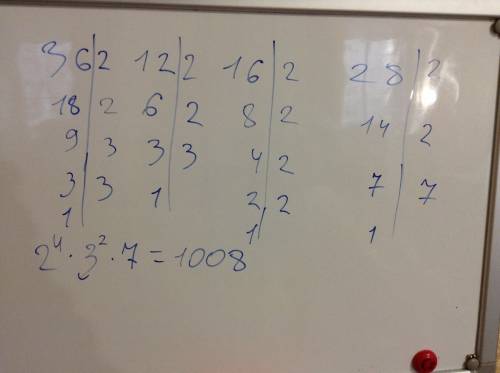 36|2 12|2 16|2 28|2
18|2 6|2 8|2 14|2
9|3 3|3 4|2 7|7
3|3 1| 2|2 1|
1| 1|
2⁴·3²·7=1008